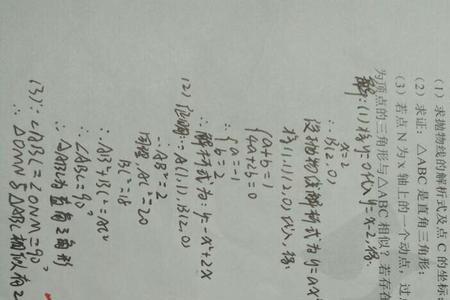 (1) 求抛物线的解析式及点 C 的坐标;
(2) 求证: △ABC 是直角三角形;
(3) 若点 N 为 x 轴上的一个动点, 过
为顶点的三角形与 △ABC 相似? 若存在
解:(1)将y=0代入y=x-2,得
x=2
∴B(2,0)
设抛物线解析式为y=ax
将(1,1)(2,0)代入,得
{a+b=1
4a+2b=0
∴{a=-1
b=2
∴解析式为:y=-x²+2x
(2)证明:∵A(1,1),B(2,0)
∴AB²=2
同理,AC²=20
BC²=18
∴AB²+BC²=AC²
∴∠ABC=90°
∴△ABC为直角三角形
(3)∵∠ABC=∠ONM=90°
∴△OMN与△ABC相似有2